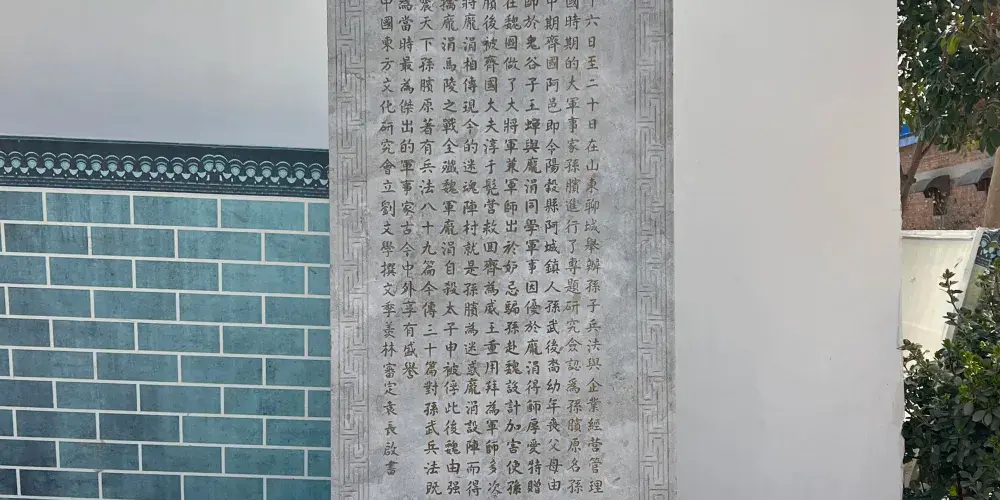 十六日至二十日在山東聊城舉辦孫子兵法與企業經營管理
國時期的大軍事家孫臏進行了專題研究僉認為孫臏原名孫
中期齊國阿邑即今陽穀縣阿城鎮人孫武後裔幼年喪父母由
師於鬼谷子王蟬與龐涓同學軍事因優於龐涓得師厚愛特贈
在魏國做了大將軍兼軍師出於妒忌騙孫赴魏設計加害使孫
臏後被齊國大夫淳于髡營救回齊為威王重用拜為軍師多次
將龐涓相傳現今的迷魂陣村就是孫臏為迷惑龐涓設陣而得
擒龐涓馬陵之戰全殲魏軍龐涓自殺太子申被俘此後魏由強
震天下孫臏原著有兵法八十九篇今傳三十篇對孫武兵法既
為當時最為傑出的軍事家古今中外享有盛譽
中國東方文化研究會立劉文學撰文季羨林審定袁長啟書